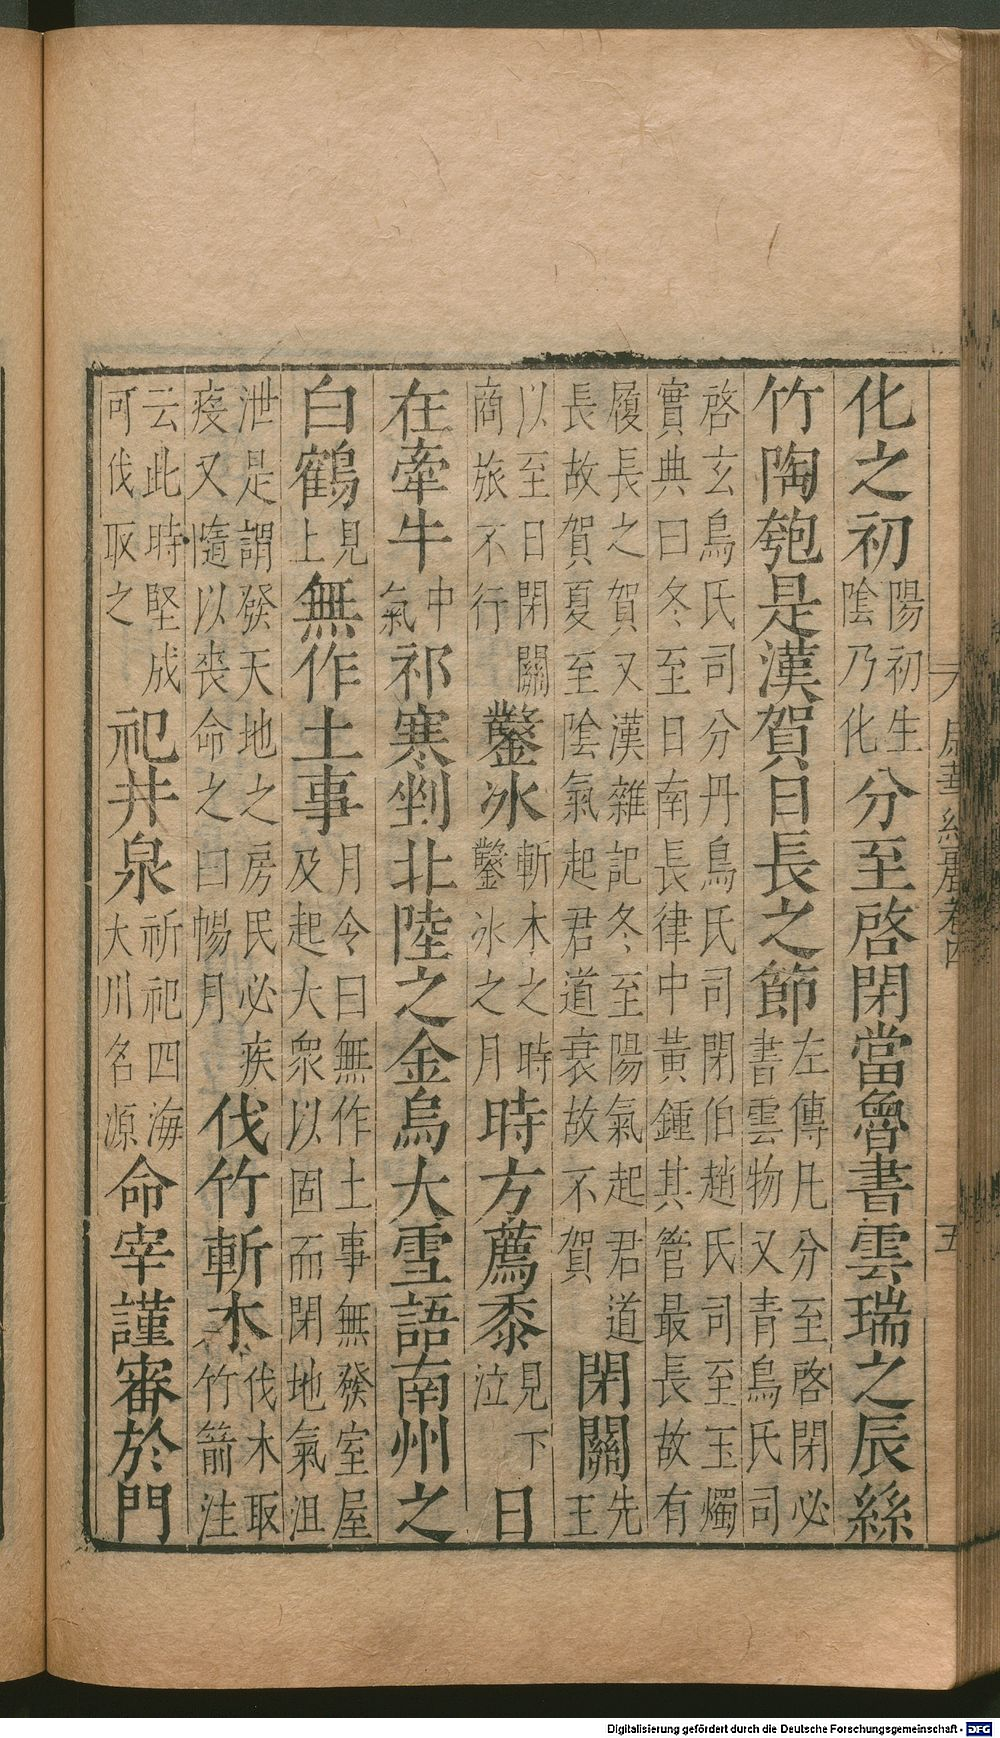 化之初陽初生陰乃化分至啓閉當魯書雲瑞之辰絲
竹陶匏是漢賀日長之節左傳凡分至啓閉必書雲物又青鳥氏司
啓玄鳥氏司分丹鳥氏司閉伯趙氏司至玉燭實典曰冬至日南長律中黃鍾其管最長故有
履長之賀又漢雜記冬至陽氣起君道長故賀夏至陰氣起君道衰故不賀閉關先王
以至日閉關商旅不行鑿冰斬木之時鑿冰之月時方薦黍見下泣日
在牽牛中氣祁寒剉北陸之金烏大雪語南州之
白鶴見上無作土事月令曰無作土事無發室屋及起大衆以固而閉地氣沮
泄是謂發天地之房民必疾疫又隨以喪命之曰暢月伐竹斬木伐木取竹箭注
云此時堅成可伐取之祀井泉祈祀四海大川名源命宰謹審於門
卷四
五
Digitalisierung gefördert durch die Deutsche Forschungsgemeinschaft - DFG